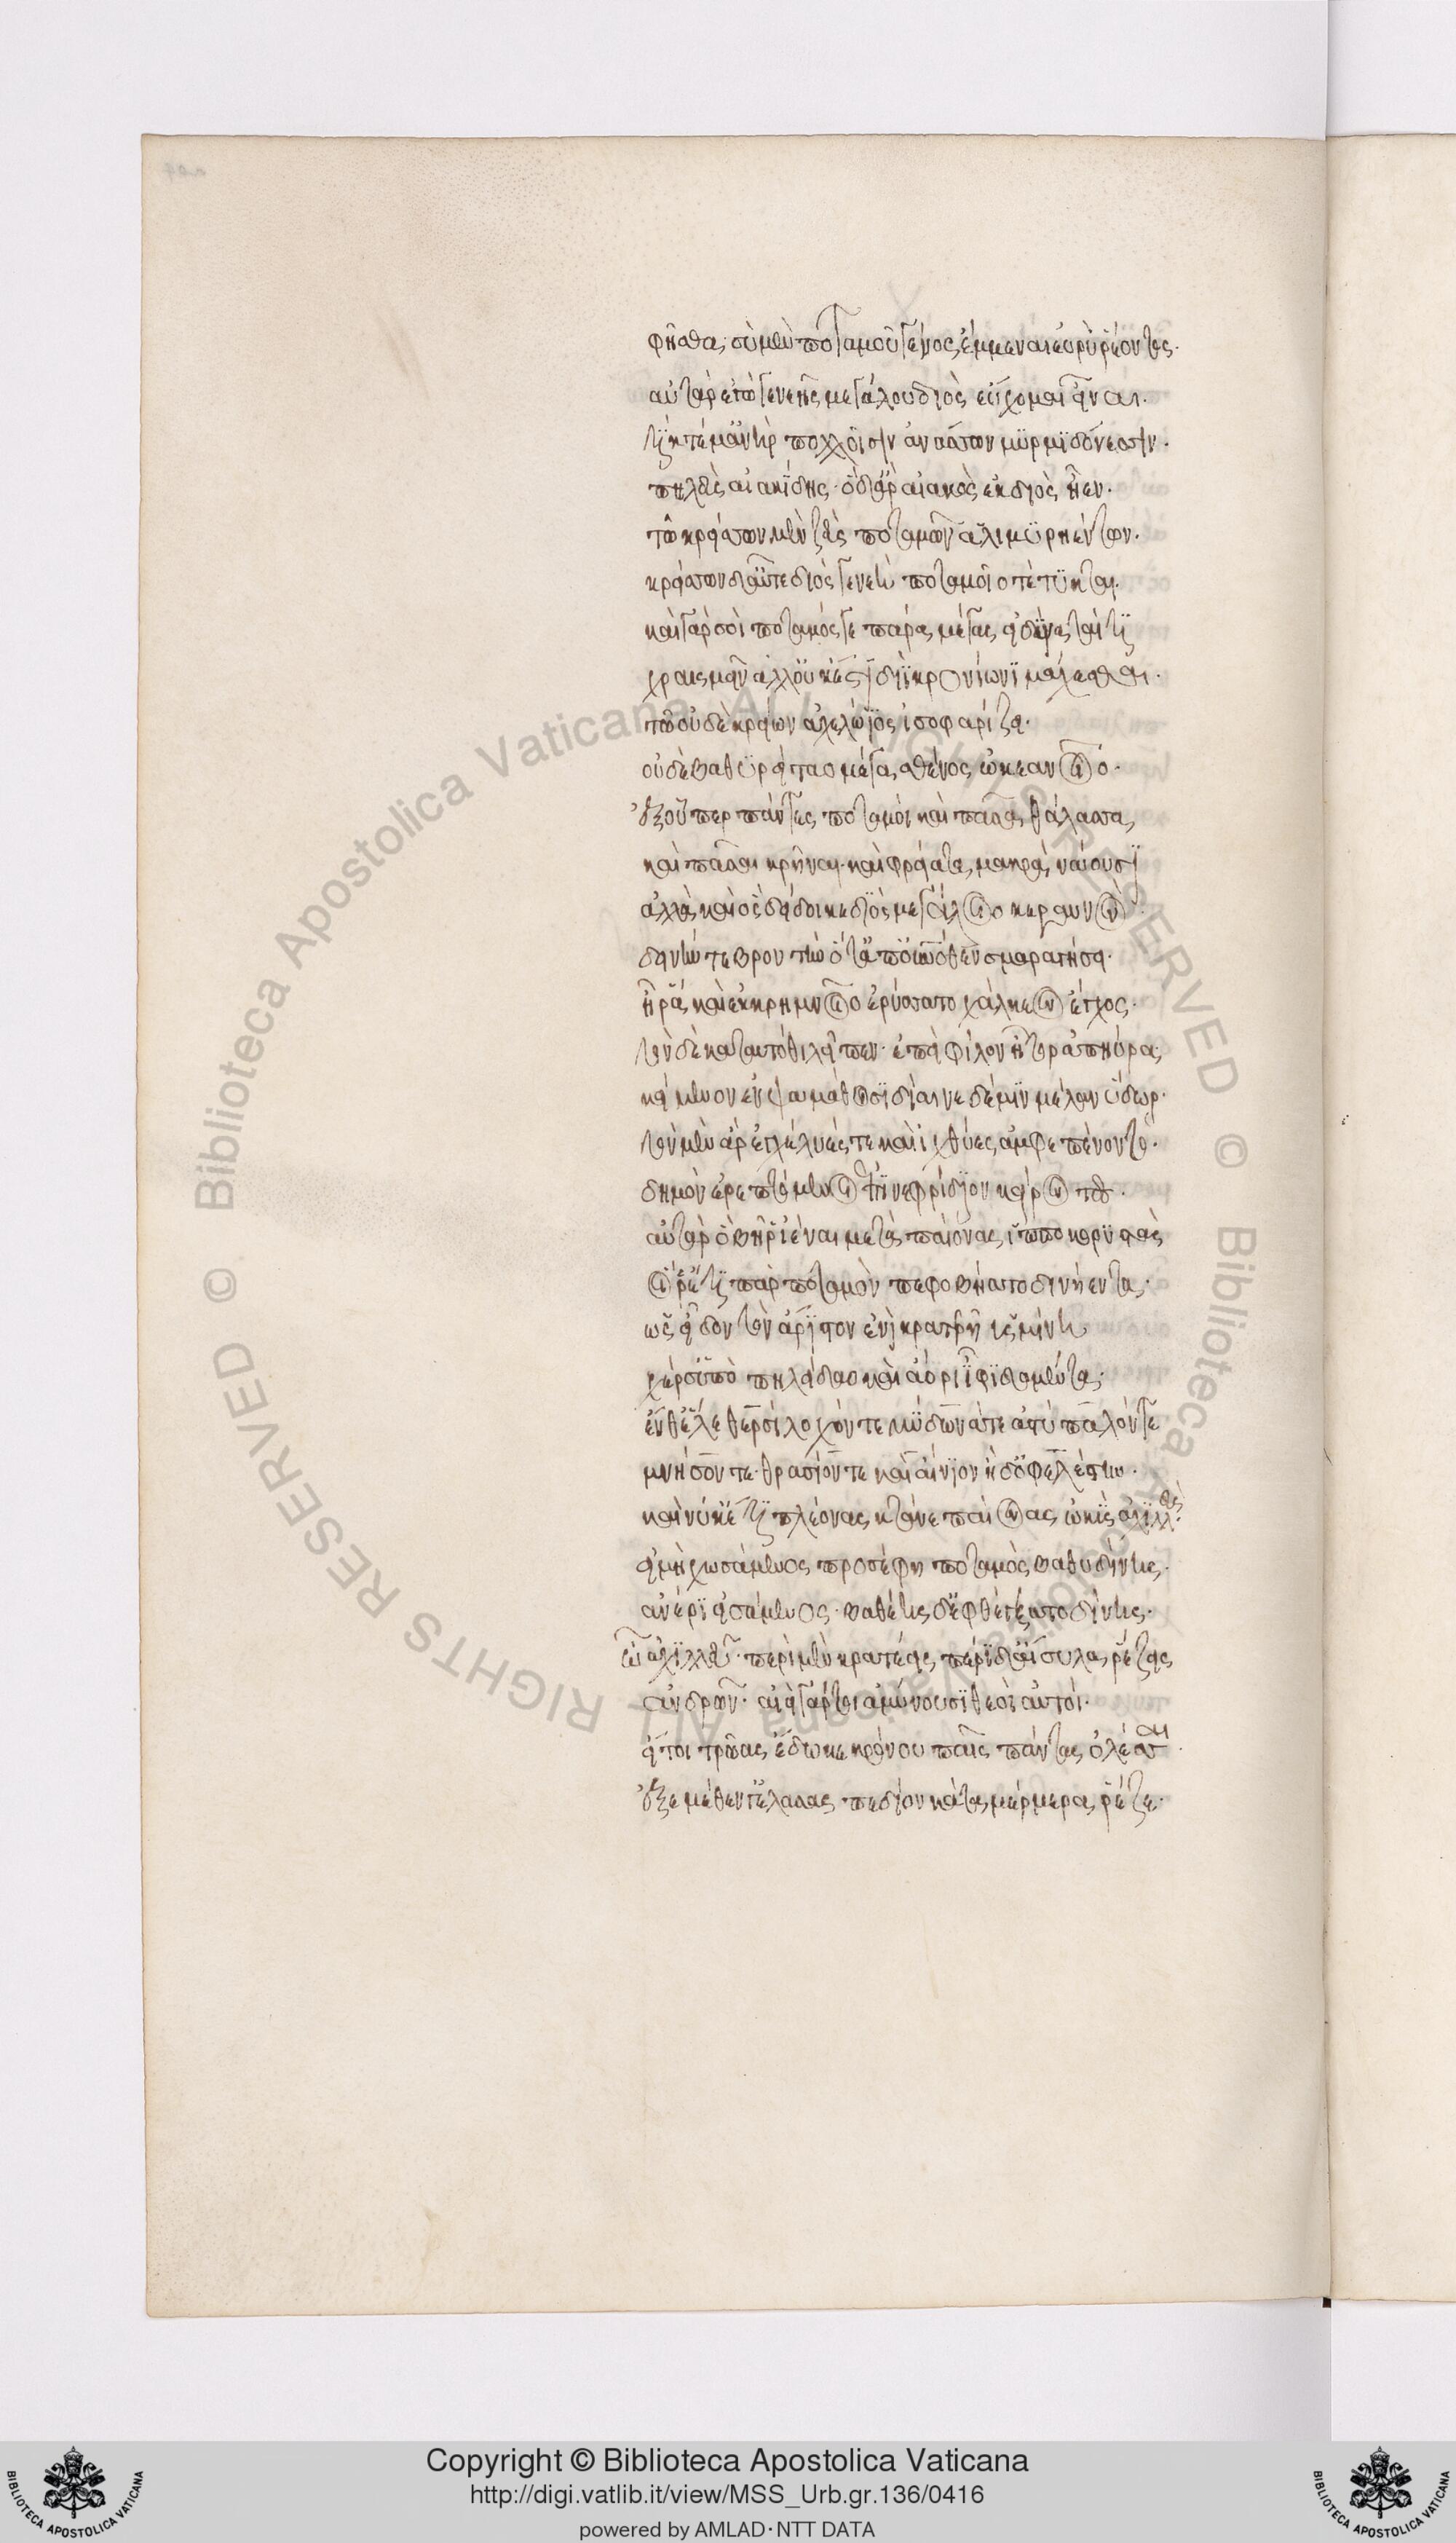 φῆσθα; σὺ μὲν ποταμοῦ γένος ἔμμεναι εὐρὺ ῥέοντος.
αὐτὰρ ἐγὼ γενεῆς μεγάλου διὸς εὔχομαι εἶναι.
τίκτέ μ᾽ ἀνὴρ πολλοῖσιν ἀνάσσων μυρμιδόνεσσιν.
πηλεὺς αἰακίδης· ὃ δ᾽ ἄρ᾽ αἰακὸς ἐκ διὸς ἦεν.
τῶ κρείσσων μὲν ζεὺς ποταμῶν ἁλιμυρηέντων.
κρείσσων δ᾽ αὖτε διὸς γενεὴ ποταμοῖο τέτυκται.
καὶ γὰρ σοὶ ποταμός γε πάρα μέγας εἰ δύναταί τι
χραισμεῖν ἀλλ᾽ οὐκ ἔστι διῒ κρονίωνι μάχεσθαι.
τῶ οὐδὲ κρείων ἀχελώϊος ἰσοφαρίζει.
οὐδὲ βαθυρείταο μέγα σθένος ὠκεανοῖο.
ἐξ οὗ περ πάντες ποταμοὶ καὶ πᾶσα θάλασσα
καὶ πᾶσαι κρῆναι· καὶ φρείατα μακρὰ νάουσι
ἀλλὰ καὶ ὃς δείδοικε διὸς μεγάλοιο κεραυνὸν
δεινήν τε βροντὴν ὅτ᾽ ἀπ᾽ οὐρανόθεν σμαραγήσῃ.
ἦ ῥα καὶ ἐκ κρημνοῖο ἐρύσσατο χάλκεον ἔγχος.
τὸν δὲ κατ᾽ αὐτόθι λεῖπεν· ἐπεὶ φίλον ἦτορ ἀπηύρα
κείμενον ἐν ψαμάθοισι δίαινε δέ μιν μέλαν ὕδωρ.
τὸν μὲν ἄρ᾽ ἐγχέλυές τε καὶ ἰχθύες ἀμφεπένοντο.
δημὸν ἐρεπτόμενοι ἐπινεφρίδιον κείροντες.
αὐτὰρ ὃ βῆ ῥ᾽ ἰέναι μετὰ παίονας ἱπποκορυστὰς
οἵ ῥ᾽ ἔτι πὰρ ποταμὸν πεφοβήατο δινήεντα.
ὡς εἶδον τὸν ἄριστον ἐνὶ κρατερῆ ὑσμίνη
χέρσ᾽ ὑπὸ πηλείδαο καὶ ἄορι ἶφι δαμέντα.
ἔνθ᾽ ἕλε θερσίλοχόν τε μύδωνά τε ἀστύπαλόν τε
μνήσόν τε θρασίον τε καὶ αἴνιον ἠδ᾽ ὀφελέστην.
καὶ νύ κ᾽ ἔτι πλέονας κτάνε παίονας ὠκὺς ἀχιλλεὺς.
εἰ μὴ χωσάμενος προσέφη ποταμὸς βαθυδίνης.
ἀνέρι εἰσάμενος· βαθέης δ᾽ ἐφθέγξατο δίνης.
ὦ ἀχιλλεῦ· περὶ μὲν κρατέεις περὶ δ᾽ αἴσυλα ῥέζεις
ἀνδρῶν· αἰεὶ γάρ τοι ἀμύνουσι θεοὶ αὐτοί.
εἴ τοι τρῶας ἔδωκε κρόνου παῖς πάντας ὀλέσσαι.
ἐξ ἐμέθεν γ᾽ ἐλάσας πεδίον κάτα μέρμερα ῥέζε.
Copyright © Biblioteca Apostolica Vaticana
http://digi.vatlib.it/view/MSS_Urb.gr.136/0416
powered by AMLAD·NTT DATA